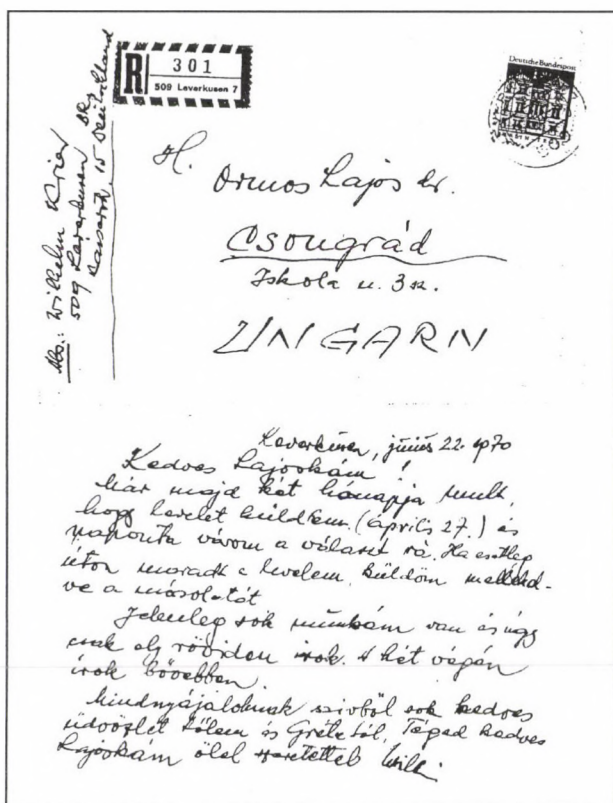 R 301
509 Leverkusen 7
Deutsche Bundespost
Abs.: Wilhelm Krier
509 Leverkusen
15 Deutschland
H. Ormos Lajos dr.
Csongrád
Iskola u. 3 sz.
UNGARN
Leverkusen, június 22. 1970
Kedves Lajoskám!
Már majd két hónapja mult,
hogy levelet küldtem (április 27.) és
naponta várom a választ rá. Ha esetleg
úton maradt a levelem, küldöm mellékel-
ve a másolatát
Jelenleg sok munkám van és úgy
csak egy röviden irok. A hét végén
irok bővebben.
Mindnyájatoknak szivből sok kedves
üdvözlet tőlem és Grétetől, Téged kedves
Lajoskám ölel szeretettel Willi